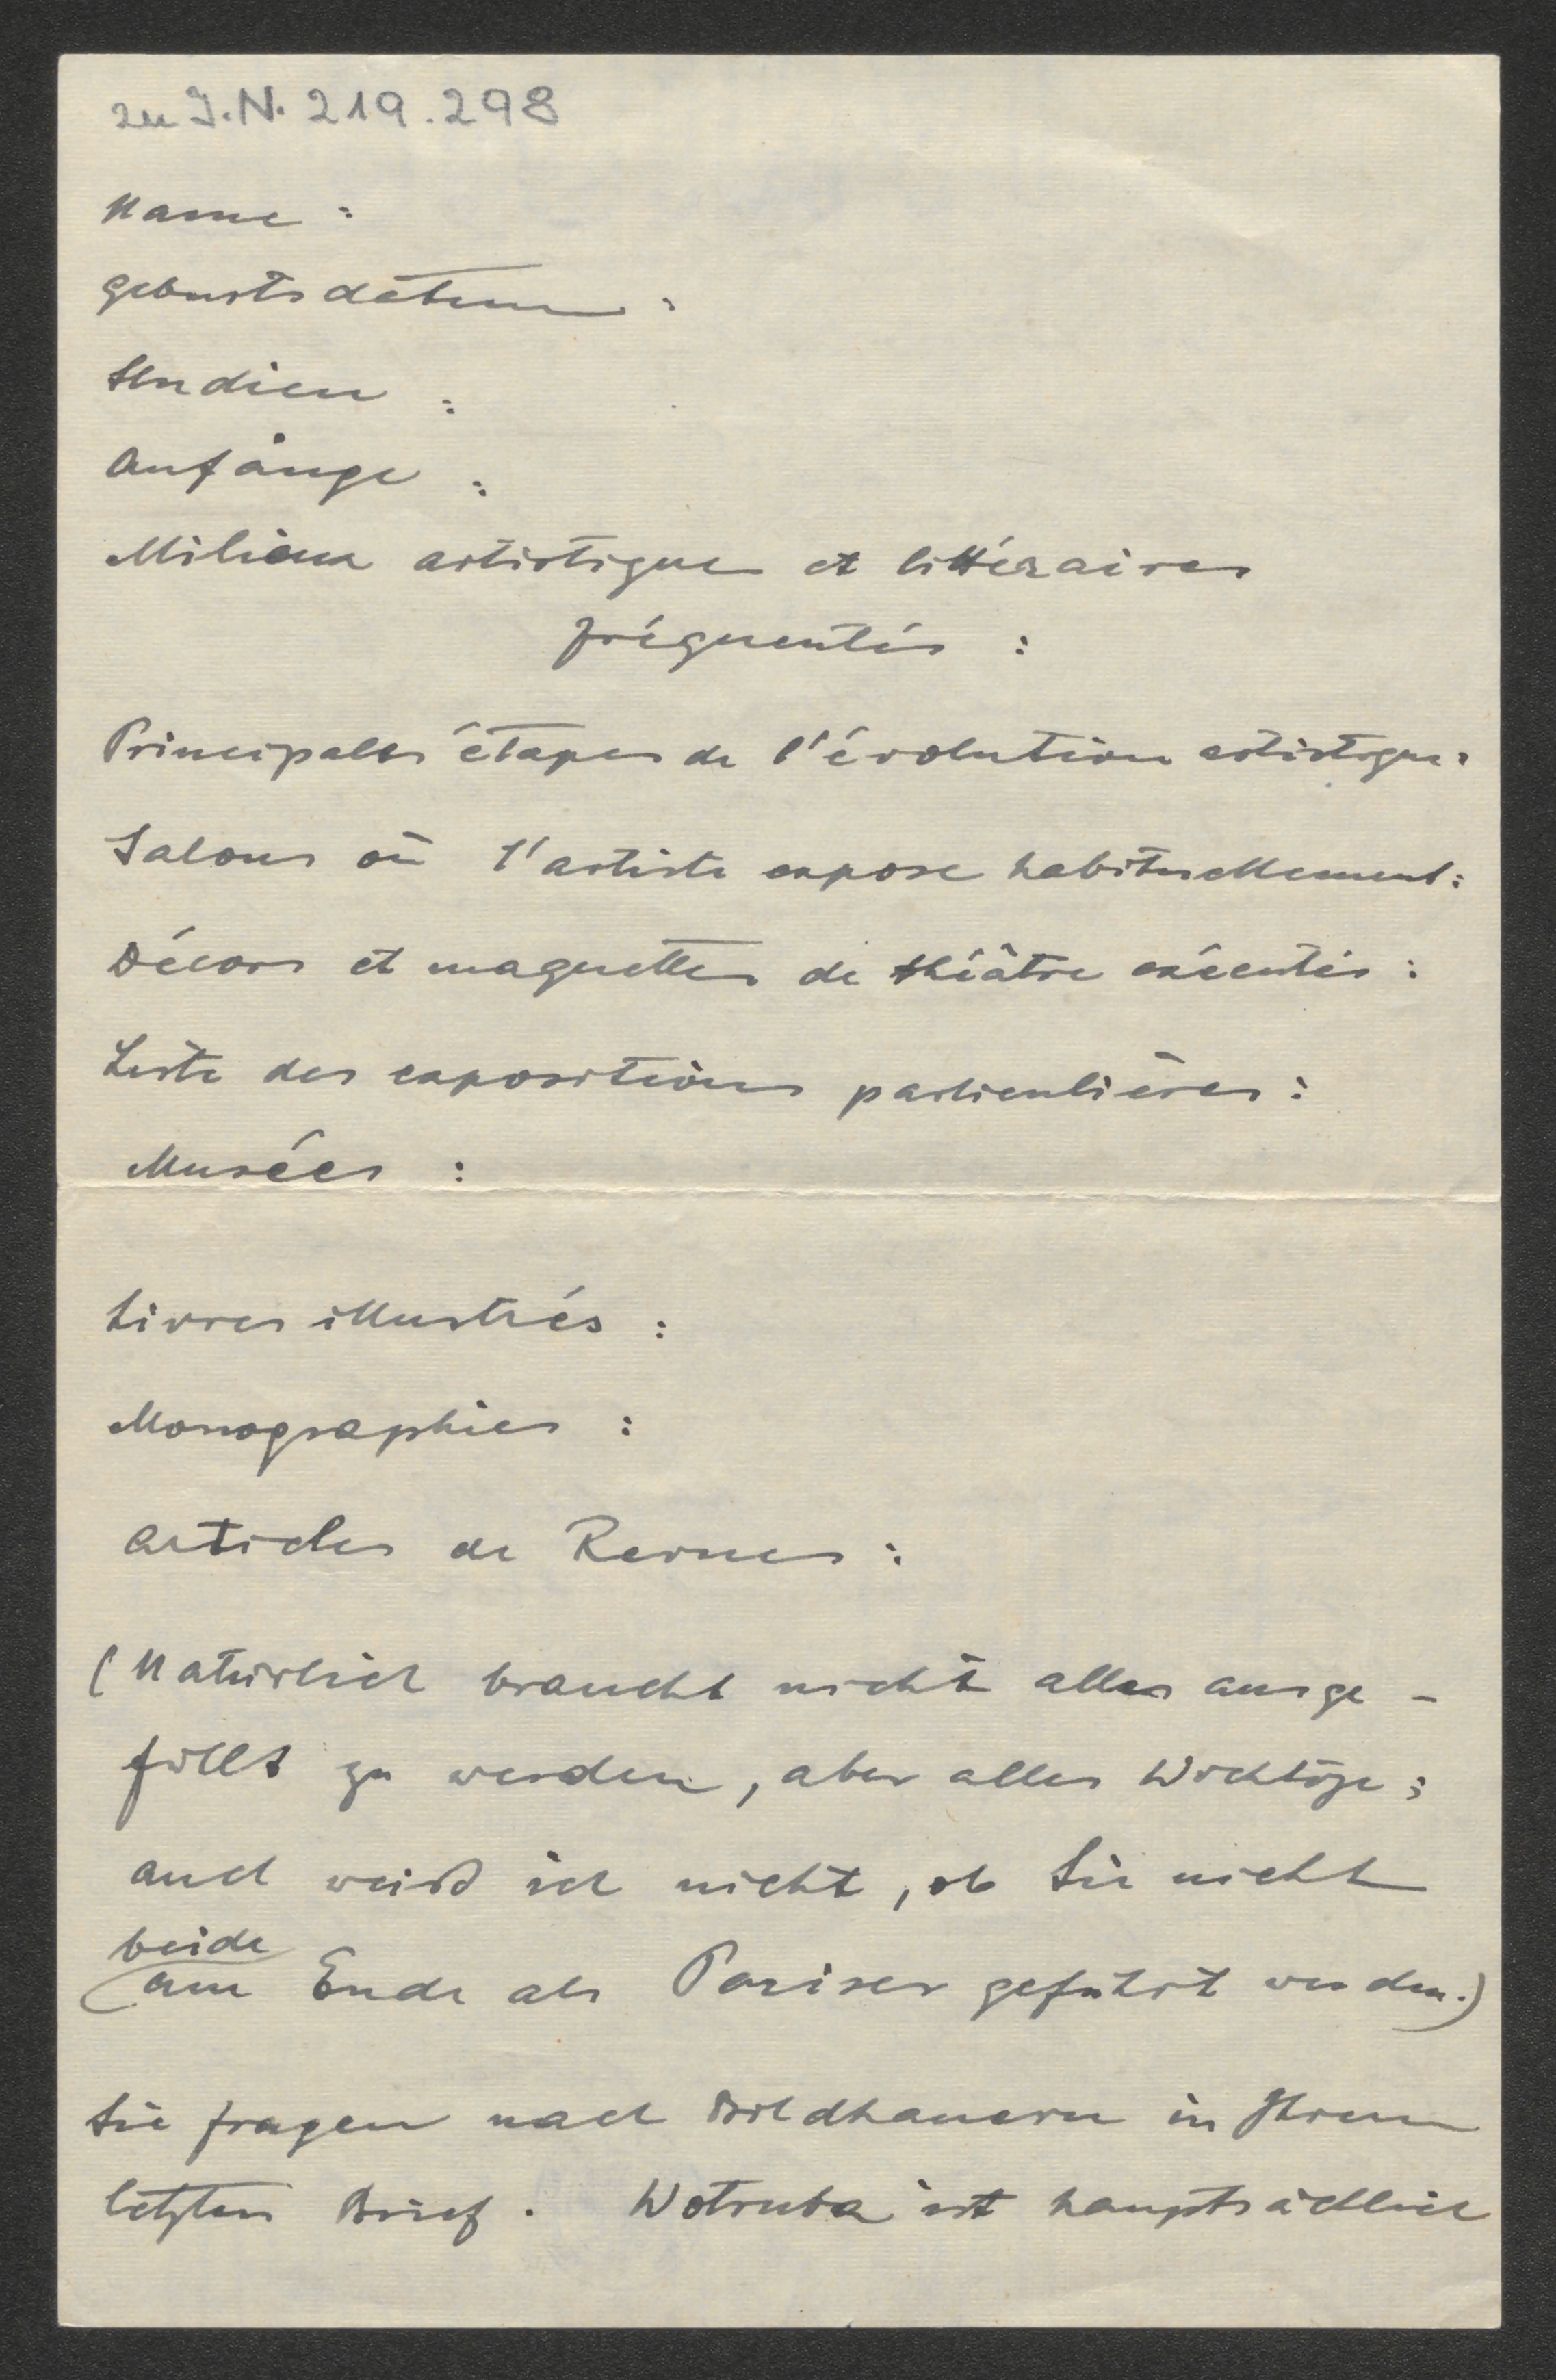 zu I.N. 219.298
Name :
Geburtsdatum :
Studien :
Anfänge :
Milieux artistiques et littéraires
fréquentés :
Principales étapes de l'évolution artistique :
Salons où l'artiste expose habituellement :
Décors et maquettes de théâtre exécutés :
Liste des expositions particulières :
Musées :
Livres illustrés :
Monographies :
Articles de Revues :
(Natürlich braucht nicht alles ausge-
füllt zu werden, aber alles Wichtige ;
auch weiß ich nicht, ob Sie nicht
beide
am Ende als Pariser geführt werden.)
Sie fragen nach Bildhauern in Ihrem
letzten Brief. Wotruba ist hauptsächlich